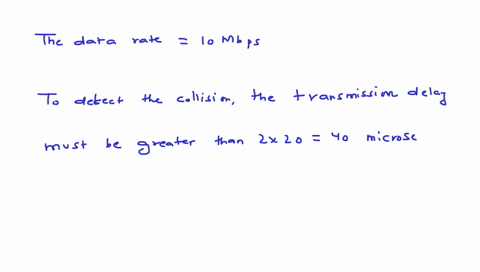 The data rate = 10 Mbps
To detect the collision, the transmission delay
must be greater than 2x20 = 40 microse